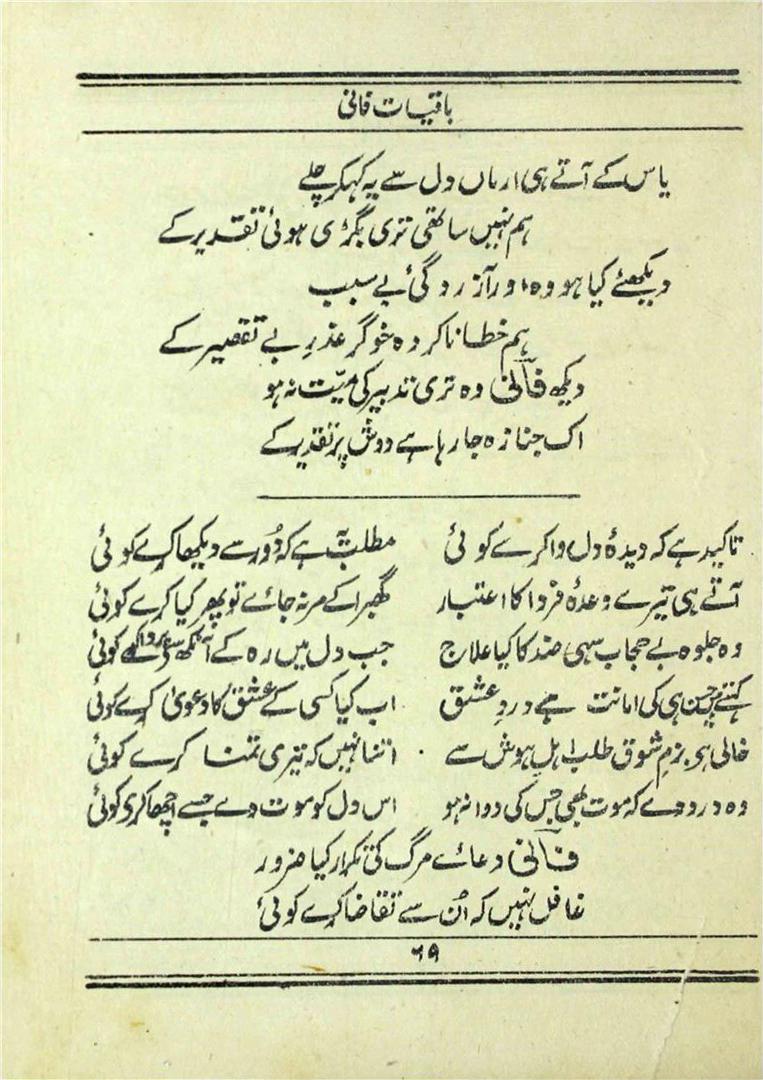 باقیات فانی
یاس کے آتے ہی ارماں دل سے یہ کہکر چلے
ہم نہیں ساتھی تری بگڑی ہوئی تقدیر کے
دیکھئے کیا ہو وہ اور آزردگیٔ بے سبب
ہم خطا ناکردہ خوگر عذرِ بے تقصیر کے
دیکھ فانیؔ وہ تری تدبیر کی میّت نہ ہو
اک جنازہ جا رہا ہے دوش پر تقدیر کے
تاکید ہے کہ دیدۂ دل وا کرے کوئی مطلب یہ ہے کہ دُور سے دیکھا کرے کوئی
آتے ہی تیرے وعدۂ فردا کا اعتبار گھبرا کے مر نہ جائے تو پھر کیا کرے کوئی
وہ جلوہ بے حجاب سہی ضد کا کیا علاج جب دل میں رہ کے آنکھ سے پروا کرے کوئی
کہتے ہیں حسن ہی کی امانت ہے دردِ عشق اب کیا کسی کے عشق کا دعویٰ کرے کوئی
خالی ہی بزمِ شوق طلب اہلِ ہوش سے اتنا نہیں کہ تیری تمنا کرے کوئی
وہ درد دے کہ موت بھی جس کی دوا نہ ہو اس دل کو موت دے جسے اچھا کری کوئی
فانیؔ دعائے مرگ کی تکرار کیا ضرور
غافل نہیں کہ اُن سے تقاضا کرے کوئی
۶۹